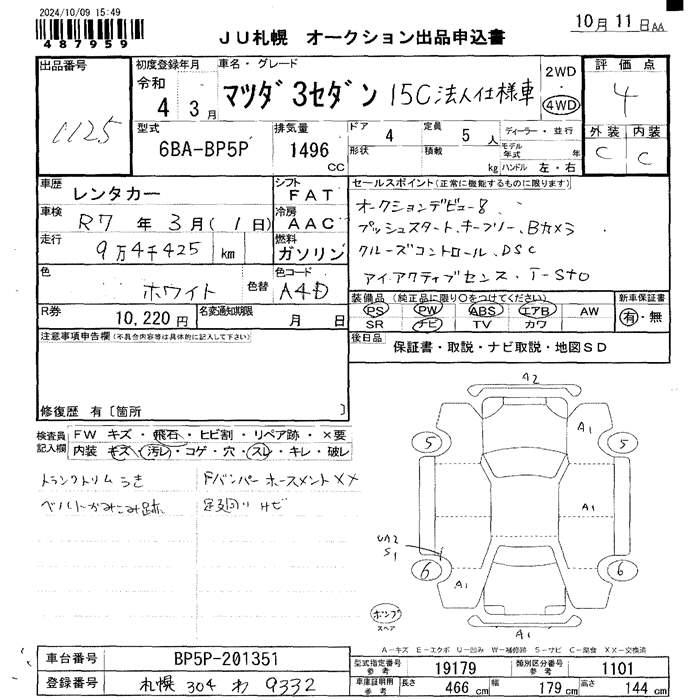 2024/10/09 15:49
487959
JU札幌 オークション出品申込書
10月11日AA
出品番号
1125
初度登録年月
令和
4 3月
車名・グレード
マツダ3セダン 15C法人仕様車
2WD
4WD
評価点
4
型式
6BA-BP5P
排気量
1496
CC
ドア
4
定員
5人
形状
積載
kg
ディーラー・並行
モデル年式 年
ハンドル 左・右
外装 内装
C C
車歴
レンタカー
シフト
FAT
車検
R7年3月(1日)
冷房
AAC
走行
9万4千425 km
燃料
ガソリン
色
ホワイト
色替
色コード
A4D
R券
10,220円
名変通知期限
月 日
セールスポイント(正常に機能するものに限ります)
オークションデビュー8
プッシュスタート、キーフリー、Bカメラ
クルーズコントロール、DSC
アイアクティブセンス・T-Sto
装備品 (純正品に限り○をつけてください)
PS PW ABS エアB AW
SR ナビ TV カワ
新車保証書
有・無
後日品
保証書・取説・ナビ取説・地図SD
注意事項申告欄(不具合内容等は具体的に記入して下さい)
修復歴 有[箇所 ]
検査員記入欄
FW キズ・飛石・ヒビ割・リペア跡・×要
内装 キズ・汚レ・コゲ・穴・スレ・キレ・破レ
トランクトリムうき
ベルトかみこみ跡
Fバンパーホースメント××
足廻りサビ
A2
A1
5
5
UA2
S1
6
6
A1
A1
ポンプ
スペア
A-キズ E-エクボ U-凹み W-補修跡 S-サビ C-腐食 XX-交換済
車台番号
BP5P-201351
登録番号
札幌 304 わ 9332
型式指定番号
参考
19179
類別区分番号
参考
1101
車庫証明用
参考
長さ 466 cm
幅 179 cm
高さ 144 cm